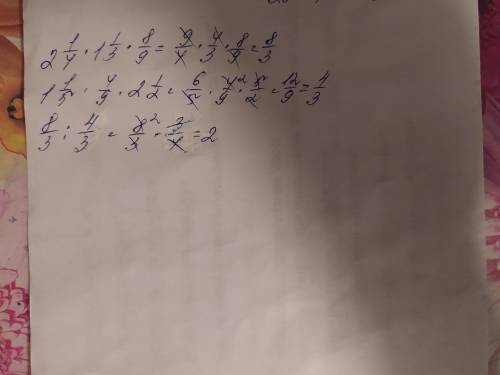 2 1/4 · 1 1/3 · 8/9 = 9/4 · 4/3 · 8/9 = 8/3
1 1/5 · 4/9 · 2 1/2 = 6/5 · 4/9 2 · 5/2 = 12/9 = 4/3
8/3 : 4/3 = 8/3 2 · 3/4 = 2